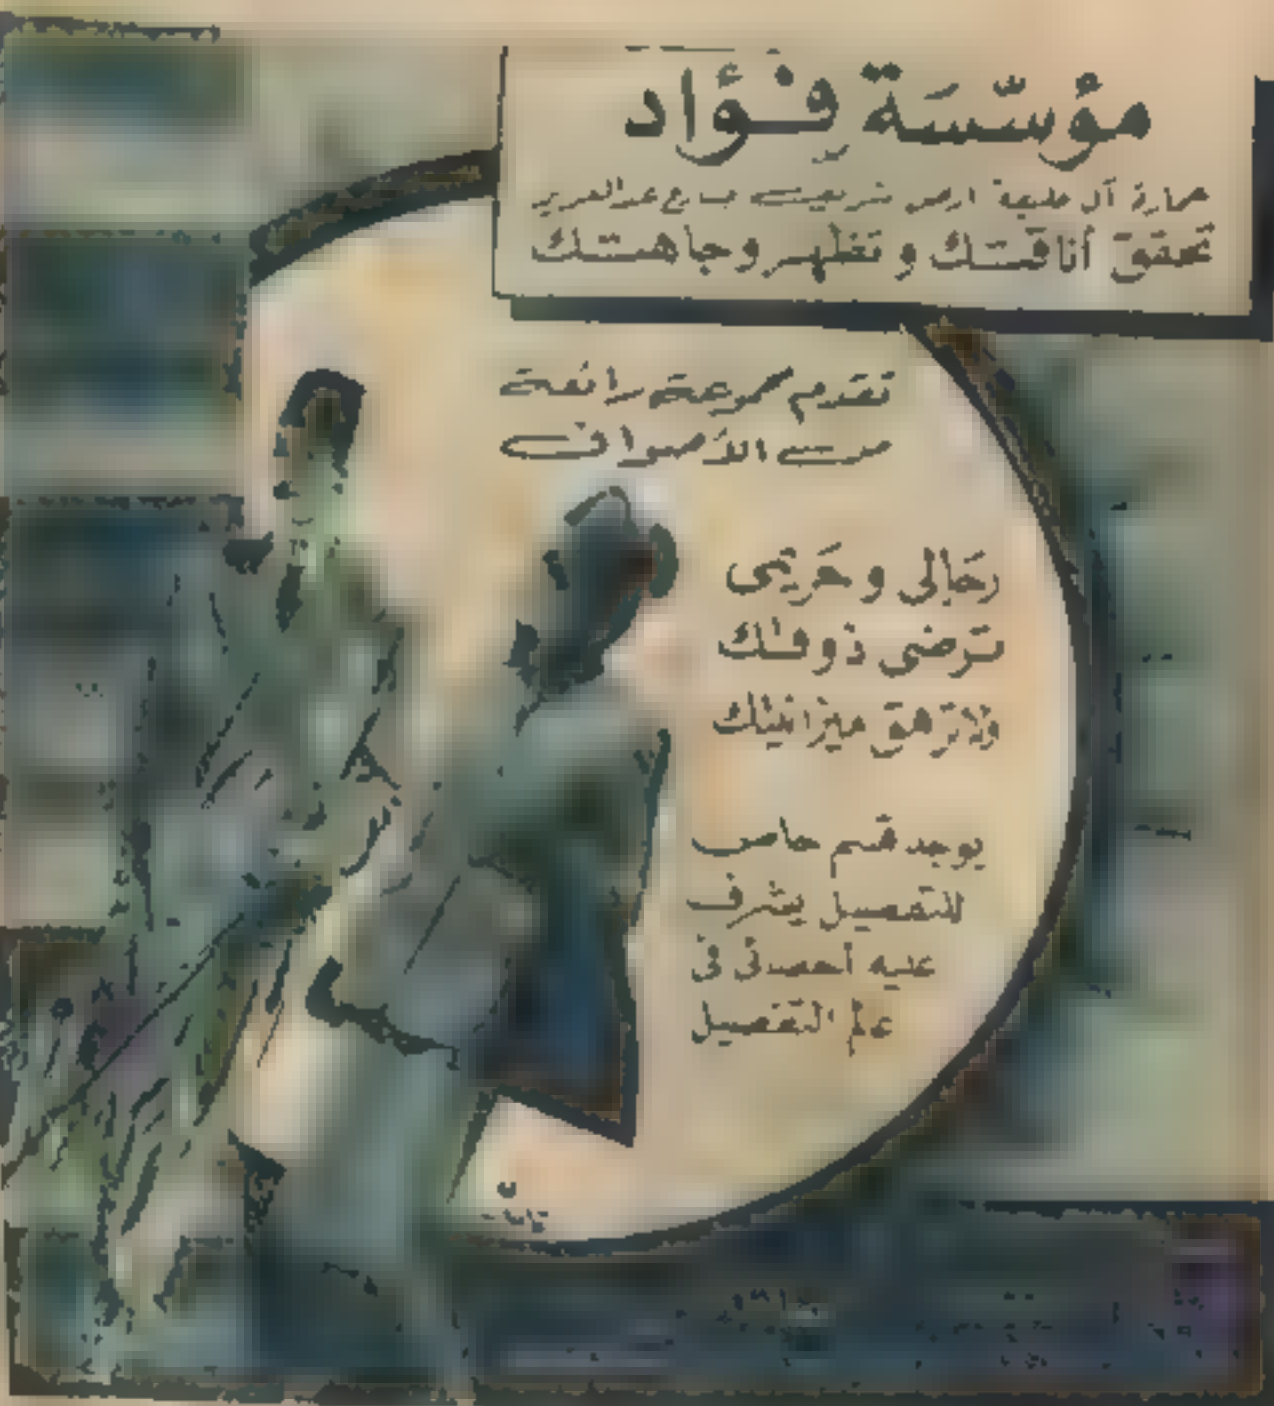 مؤسّسَة فِؤاد
عمارة آل خليفة ارض شريف ش ع عبد العزيز
تحقق أناقتك و تظهر وجاهتك
تقدم مجموعة رائعة
من الأصواف
رجَالى و حَريمى
ترضى ذوقك
ولا ترهق ميزانيتك
يوجد قسم خاص
للتفصيل يشرف
عليه أخصائى فى
عالم التفصيل